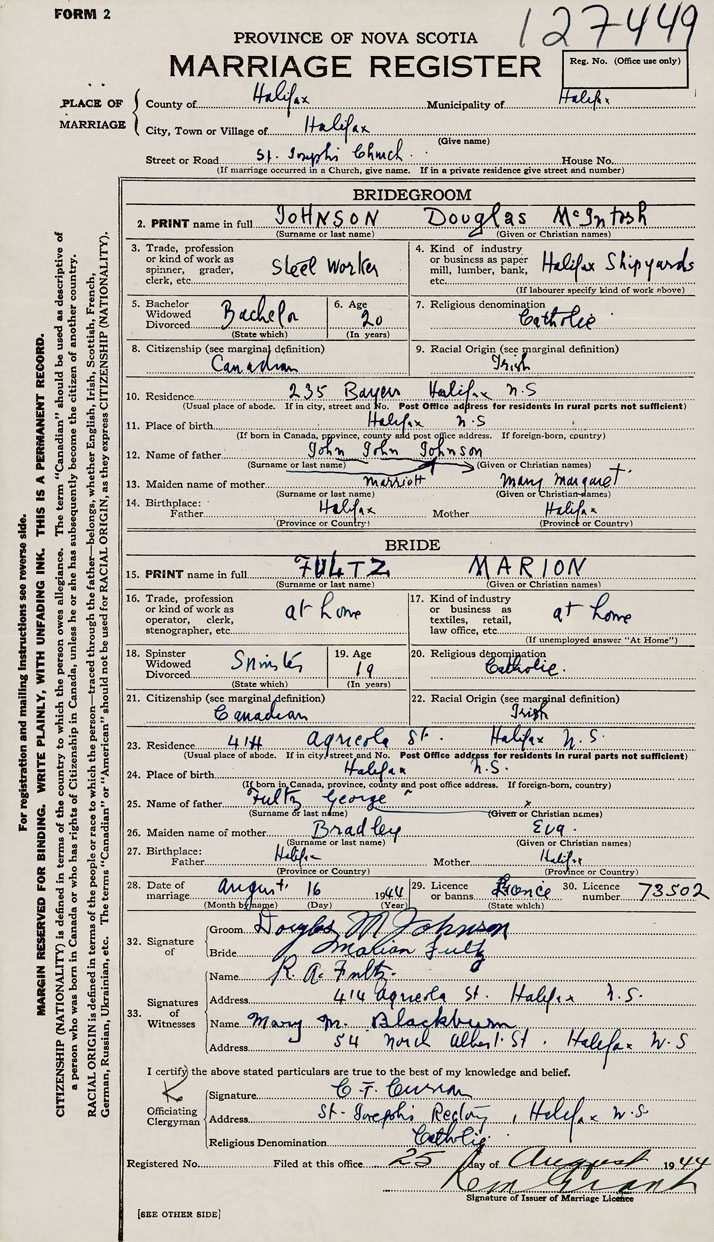 FORM 2
127449
PROVINCE OF NOVA SCOTIA
MARRIAGE REGISTER
Reg. No. (Office use only)
PLACE OF MARRIAGE
County of Halifax Municipality of Halifax
City, Town or Village of Halifax
(Give name)
Street or Road St. Josephs Church House No.
(If marriage occurred in a Church, give name. If in a private residence give street and number)
BRIDEGROOM
2. PRINT name in full JOHNSON Douglas McIntosh
(Surname or last name) (Given or Christian names)
3. Trade, profession or kind of work as spinner, grader, clerk, etc. Steel Worker
4. Kind of industry or business as paper mill, lumber, bank, etc. Halifax Shipyards
(If labourer specify kind of work above)
5. Bachelor Widowed Divorced Bachelor
(State which)
6. Age 20
(In years)
7. Religious denomination
Catholic
8. Citizenship (see marginal definition)
Canadian
9. Racial Origin (see marginal definition)
Irish
10. Residence 235 Bayers Halifax N.S
(Usual place of abode. If in city, street and No. Post Office address for residents in rural parts not sufficient)
11. Place of birth Halifax N.S
(If born in Canada, province, county and post office address. If foreign-born, country)
12. Name of father John John Johnson
(Surname or last name) (Given or Christian names)
13. Maiden name of mother Marriott Mary Margaret
(Surname or last name) (Given or Christian names)
14. Birthplace:
Father Halifax Mother Halifax
(Province or Country) (Province or Country)
BRIDE
15. PRINT name in full FULTZ MARION
(Surname or last name) (Given or Christian names)
16. Trade, profession or kind of work as operator, clerk, stenographer, etc. at home
17. Kind of industry or business as textiles, retail, law office, etc. at home
(If unemployed answer "At Home")
18. Spinster Widowed Divorced Spinster
(State which)
19. Age 19
(In years)
20. Religious denomination
Catholic.
21. Citizenship (see marginal definition)
Canadian
22. Racial Origin (see marginal definition)
Irish
23. Residence 414 Agricola St. Halifax N.S.
(Usual place of abode. If in city, street and No. Post Office address for residents in rural parts not sufficient)
24. Place of birth Halifax N.S.
(If born in Canada, province, county and post office address. If foreign-born, country)
25. Name of father Fultz George
(Surname or last name) (Given or Christian names)
26. Maiden name of mother Bradley Eva
(Surname or last name) (Given or Christian names)
27. Birthplace:
Father Halifax Mother Halifax
(Province or Country) (Province or Country)
28. Date of marriage August 16 1944
(Month by name) (Day) (Year)
29. Licence or banns
(State which)
30. Licence number 73502
32. Signature of
Groom Douglas M Johnson
Bride Marion Fultz
33. Signatures of Witnesses
Name R. A. Fultz.
Address 414 Agricola St. Halifax N.S.
Name Mary M. Blackburn
Address 54 North Albert St. Halifax N.S
I certify the above stated particulars are true to the best of my knowledge and belief.
Officiating Clergyman
Signature C F Curran
Address St. Josephs Rectory, Halifax N.S
Religious Denomination Catholic
Registered No. Filed at this office 25 day of August 1944
Grant
Signature of Issuer of Marriage Licence
[SEE OTHER SIDE]
For registration and mailing instructions see reverse side.
MARGIN RESERVED FOR BINDING. WRITE PLAINLY, WITH UNFADING INK. THIS IS A PERMANENT RECORD.
CITIZENSHIP (NATIONALITY) is defined in terms of the country to which the person owes allegiance. The term "Canadian" should be used as descriptive of
a person who was born in Canada or who has rights of Citizenship in Canada, unless he or she has subsequently become the citizen of another country.
RACIAL ORIGIN is defined in terms of the people or race to which the person—traced through the father—belongs, whether English, Irish, Scottish, French,
German, Russian, Ukrainian, etc. The terms "Canadian" or "American" should not be used for RACIAL ORIGIN, as they express CITIZENSHIP (NATIONALITY).